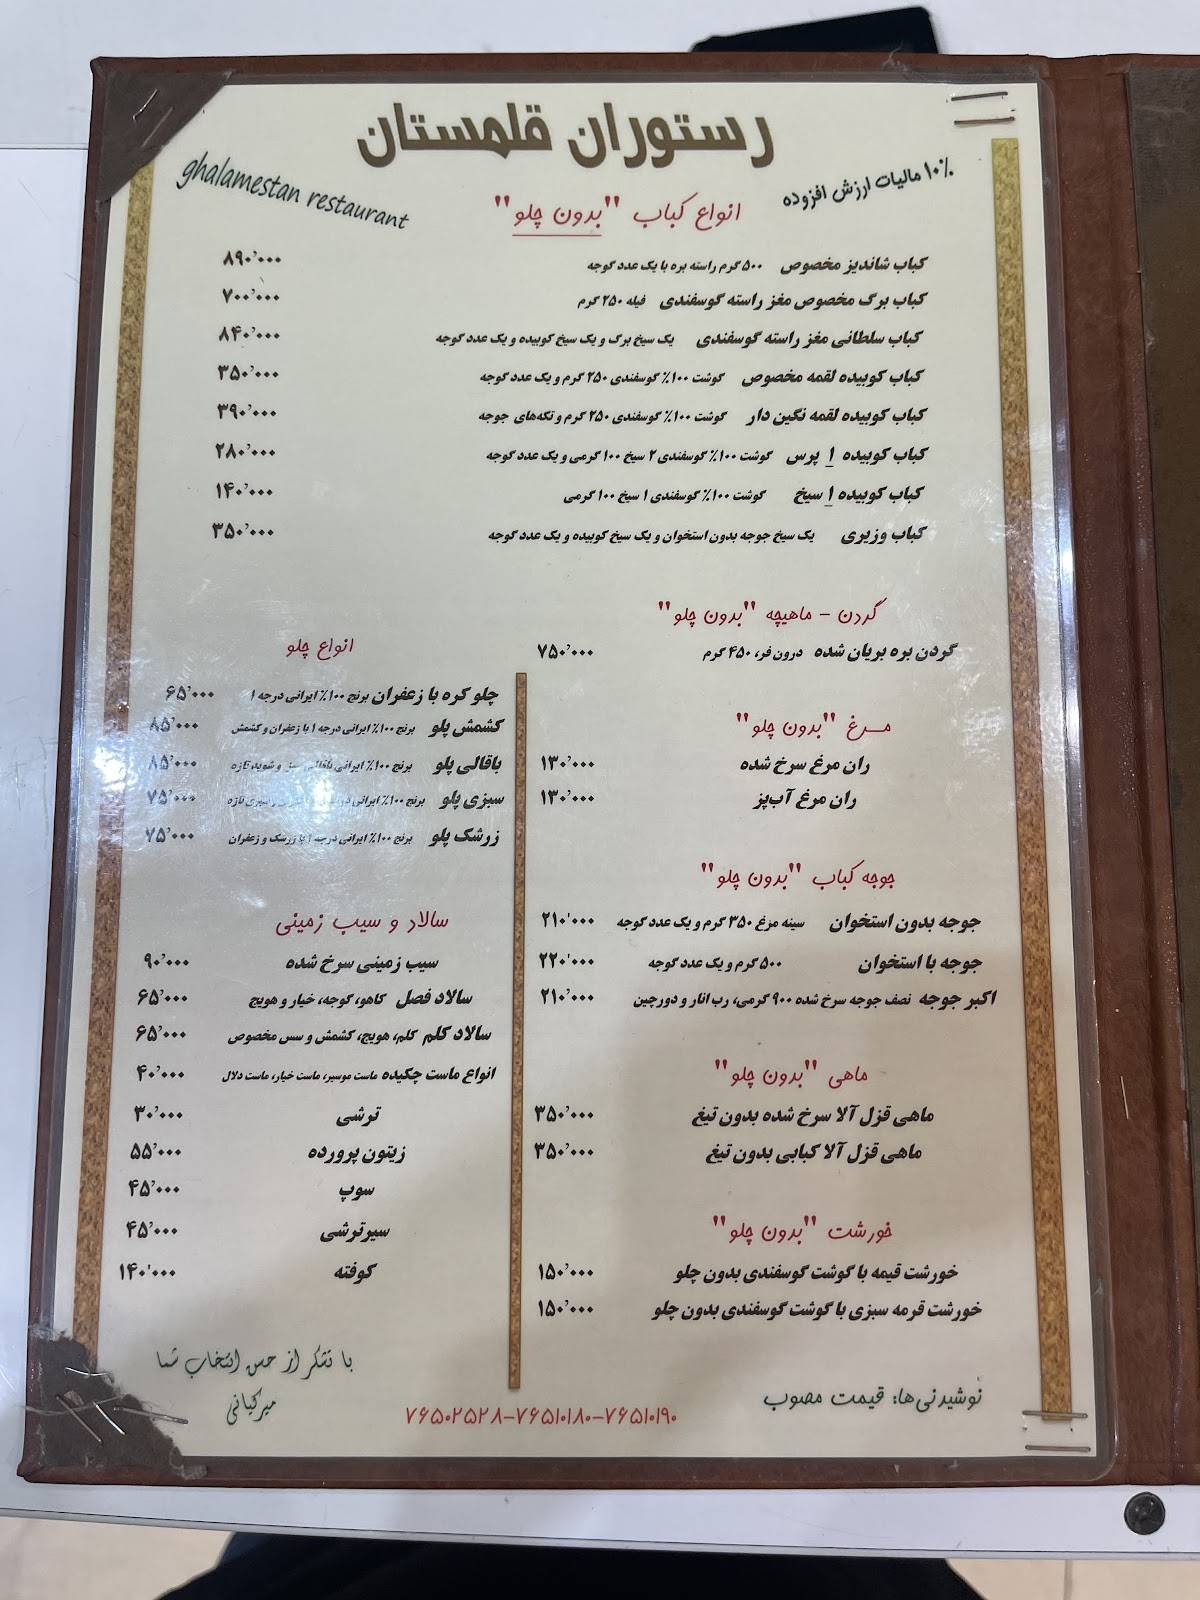 رستوران قلمستان
ghalamestan restaurant
۱۰٪ مالیات ارزش افزوده
انواع کباب "بدون چلو"
کباب شاندیز مخصوص ۵۰۰ گرم راسته بره با یک عدد گوجه ۸۹۰٬۰۰۰
کباب برگ مخصوص مغز راسته گوسفندی فیله ۲۵۰ گرم ۷۰۰٬۰۰۰
کباب سلطانی مغز راسته گوسفندی یک سیخ برگ و یک سیخ کوبیده و یک عدد گوجه ۸۴۰٬۰۰۰
کباب کوبیده لقمه مخصوص گوشت ۱۰۰٪ گوسفندی ۲۵۰ گرم و یک عدد گوجه ۳۵۰٬۰۰۰
کباب کوبیده لقمه نگین دار گوشت ۱۰۰٪ گوسفندی ۲۵۰ گرم و تکه‌های جوجه ۳۹۰٬۰۰۰
کباب کوبیده ۱ پرس گوشت ۱۰۰٪ گوسفندی ۲ سیخ ۱۰۰ گرمی و یک عدد گوجه ۲۸۰٬۰۰۰
کباب کوبیده ۱ سیخ گوشت ۱۰۰٪ گوسفندی ۱ سیخ ۱۰۰ گرمی ۱۴۰٬۰۰۰
کباب وزیری یک سیخ جوجه بدون استخوان و یک سیخ کوبیده و یک عدد گوجه ۳۵۰٬۰۰۰
گردن - ماهیچه "بدون چلو"
گردن بره بریان شده درون فر، ۴۵۰ گرم ۷۵۰٬۰۰۰
مرغ "بدون چلو"
ران مرغ سرخ شده ۱۳۰٬۰۰۰
ران مرغ آب‌پز ۱۳۰٬۰۰۰
جوجه کباب "بدون چلو"
جوجه بدون استخوان سینه مرغ ۳۵۰ گرم و یک عدد گوجه ۲۱۰٬۰۰۰
جوجه با استخوان ۵۰۰ گرم و یک عدد گوجه ۲۲۰٬۰۰۰
اکبر جوجه نصف جوجه سرخ شده ۹۰۰ گرمی، رب انار و دورچین ۲۱۰٬۰۰۰
ماهی "بدون چلو"
ماهی قزل آلا سرخ شده بدون تیغ ۳۵۰٬۰۰۰
ماهی قزل آلا کبابی بدون تیغ ۳۵۰٬۰۰۰
خورشت "بدون چلو"
خورشت قیمه با گوشت گوسفندی بدون چلو ۱۵۰٬۰۰۰
خورشت قرمه سبزی با گوشت گوسفندی بدون چلو ۱۵۰٬۰۰۰
نوشیدنی‌ها: قیمت مصوب
انواع چلو
چلو کره با زعفران برنج ۱۰۰٪ ایرانی درجه ۱ ۶۵٬۰۰۰
کشمش پلو برنج ۱۰۰٪ ایرانی درجه ۱ با زعفران و کشمش ۸۵٬۰۰۰
باقالی پلو برنج ۱۰۰٪ ایرانی باقالی سبز و شوید تازه ۸۵٬۰۰۰
سبزی پلو برنج ۱۰۰٪ ایرانی تازه ۷۵٬۰۰۰
زرشک پلو برنج ۱۰۰٪ ایرانی درجه ۱ با زرشک و زعفران ۷۵٬۰۰۰
سالاد و سیب زمینی
سیب زمینی سرخ شده ۹۰٬۰۰۰
سالاد فصل کاهو، گوجه، خیار و هویج ۶۵٬۰۰۰
سالاد کلم کلم، هویج، کشمش و سس مخصوص ۶۵٬۰۰۰
انواع ماست چکیده ماست موسیر، ماست خیار، ماست دلال ۴۰٬۰۰۰
ترشی ۳۰٬۰۰۰
زیتون پرورده ۵۵٬۰۰۰
سوپ ۴۵٬۰۰۰
سیرترشی ۴۵٬۰۰۰
کوفته ۱۴۰٬۰۰۰
با تشکر از حسن انتخاب شما
میرکیانی
۷۶۵۰۲۵۲۸-۷۶۵۱۰۱۸۰-۷۶۵۱۰۱۹۰